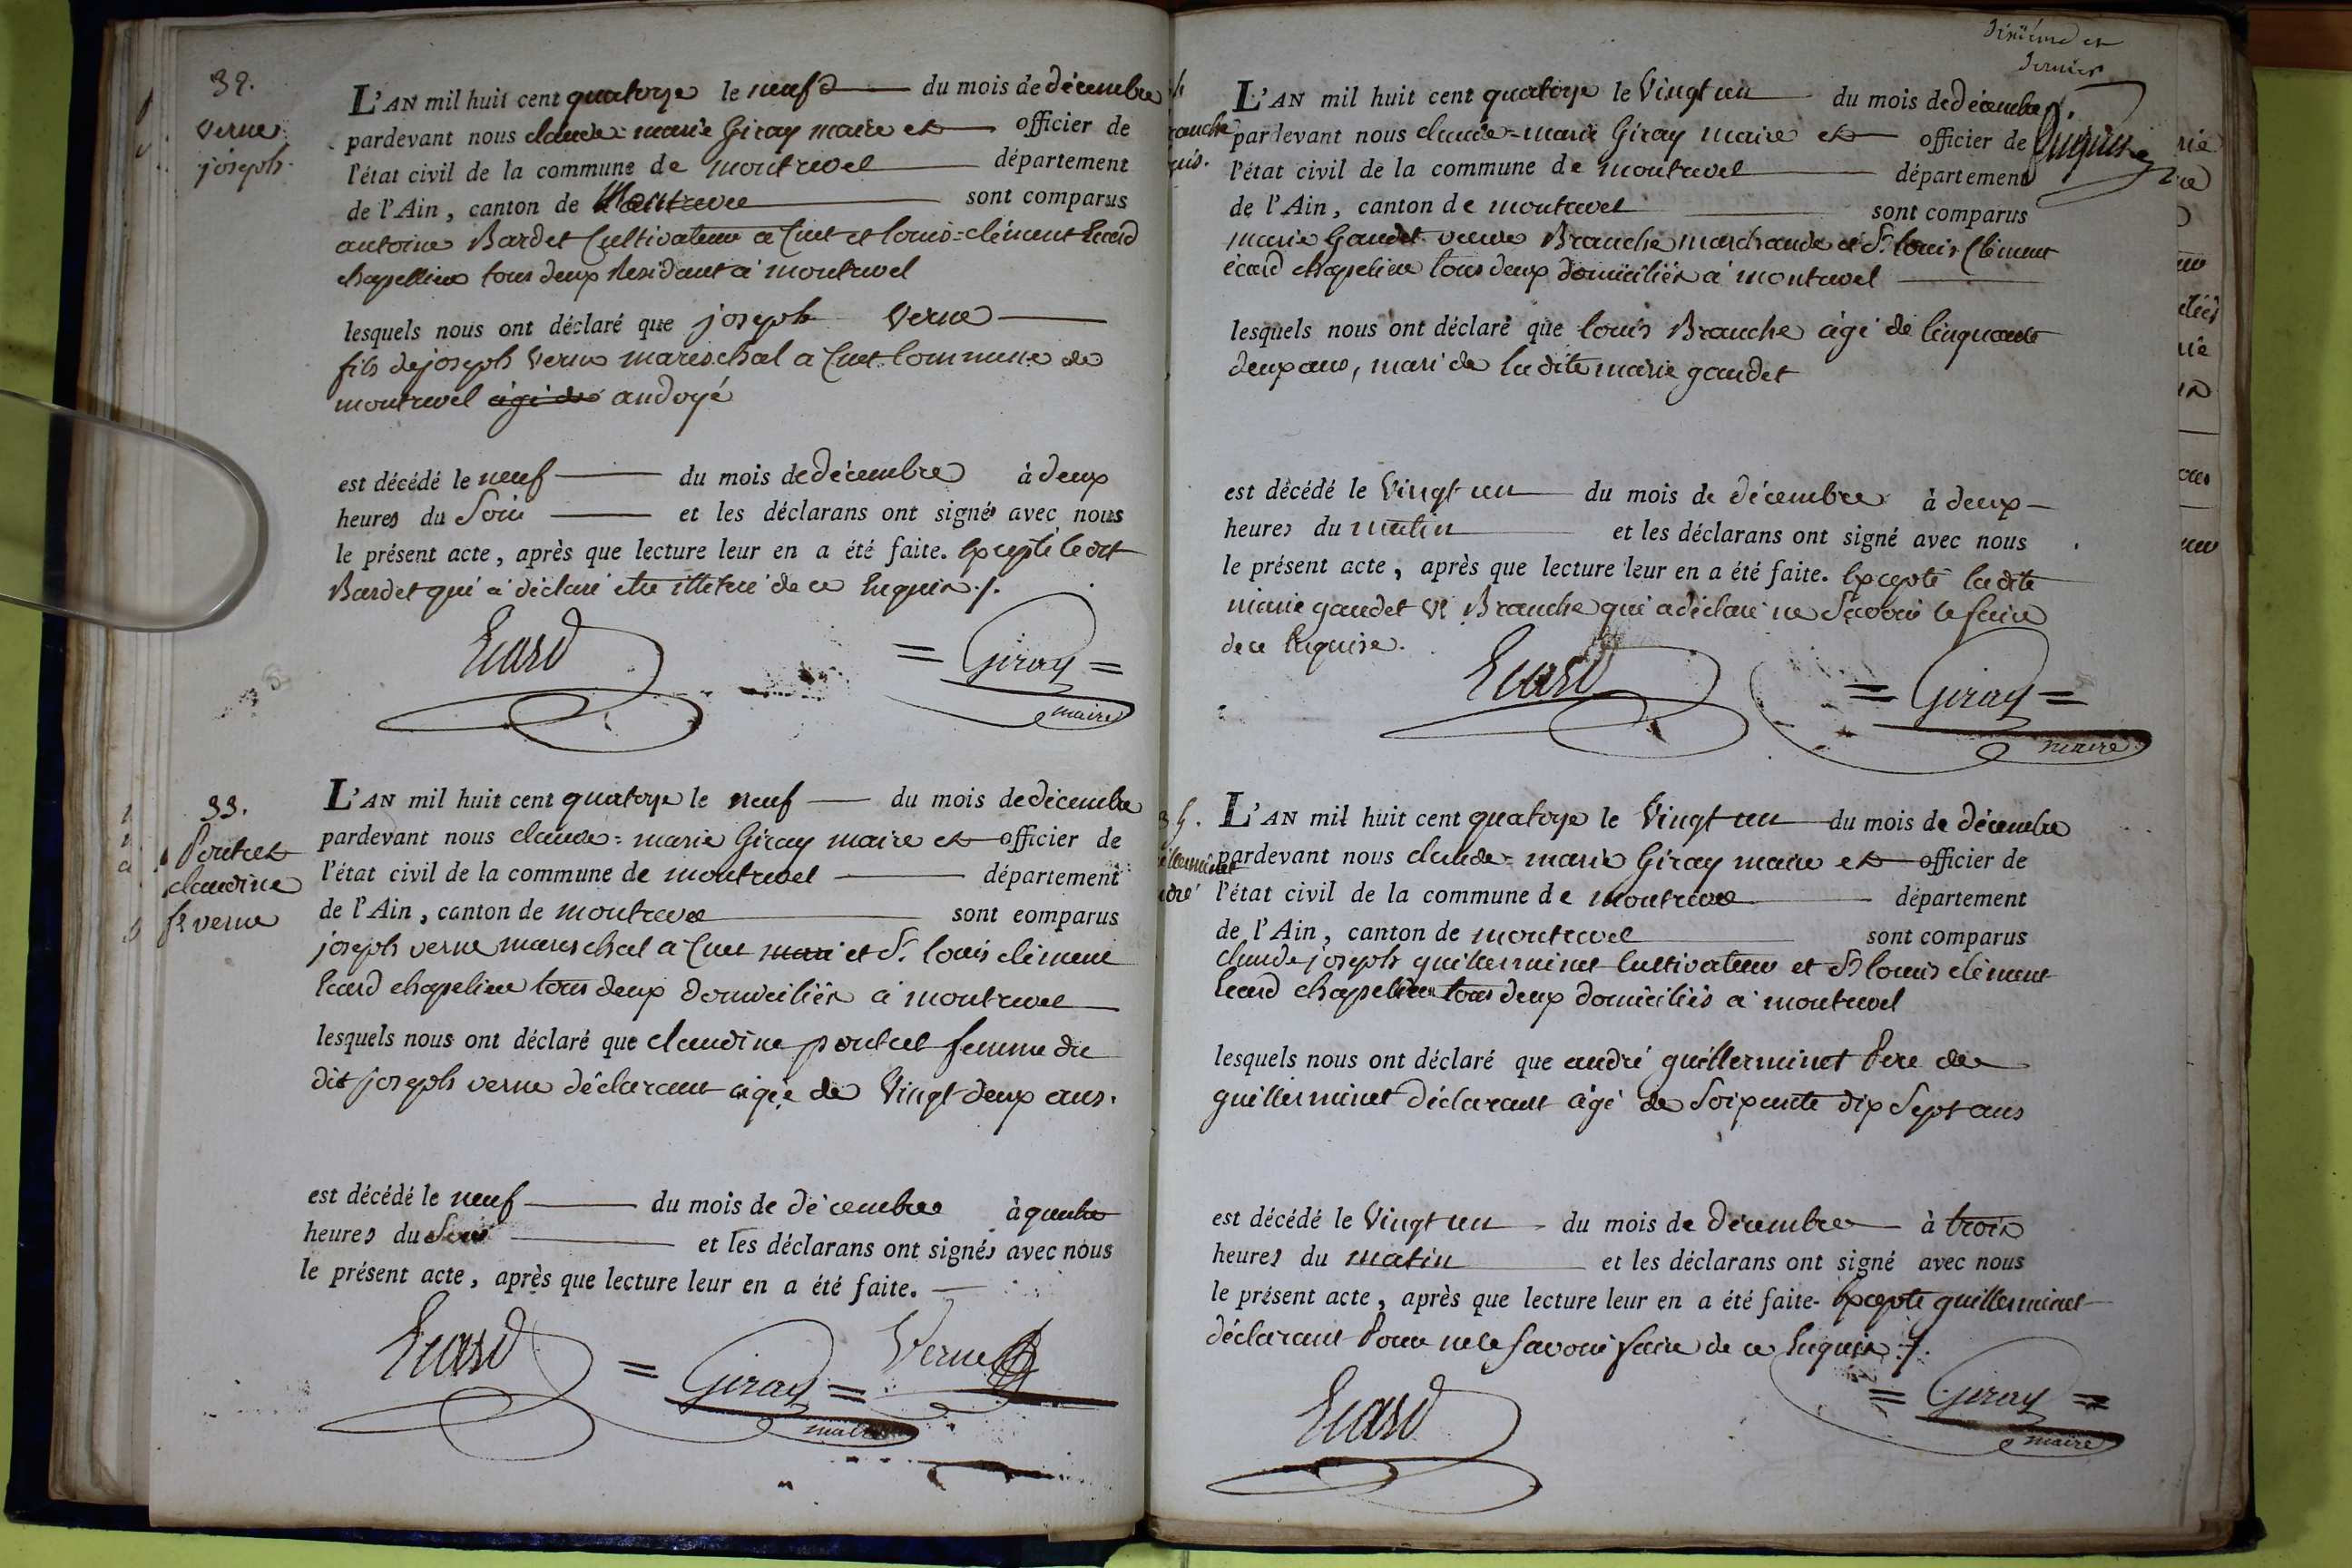 32.
Verne
joseph.
L'AN mil huit cent quatorze le neuf du mois de décembre
pardevant nous claude=marie Giray maire et officier de
l'état civil de la commune de montrevel département
de l'Ain, canton de Montrevel sont comparus
antoine Bardet Cultivateur a Cuet et louis=clément Ecard
chapellier tous deux Residant a montrevel
lesquels nous ont déclaré que joseph Verne
fils de joseph Verne mareschal a Cuet Commune de
montrevel agé de andoyé
est décédé le neuf du mois de décembre à deux
heures du Soir et les déclarans ont signés avec nous
le présent acte, après que lecture leur en a été faite. Excepté ledit
Bardet qui a déclaré etre illetré de ce Enquis ./.
Ecard
= Giray =
maire
33.
Poutret
claudine
fe verne
L'AN mil huit cent quatorze le neuf du mois de décembre
pardevant nous claude=marie Giray maire et officier de
l'état civil de la commune de montrevel département
de l'Ain, canton de montrevel sont comparus
joseph verne mareschal a Cuet mari et Sr. louis clément
Ecard chapelier tous deux domiciliés a montrevel
lesquels nous ont déclaré que claudine poutret femme du
dit joseph verne déclarant agée de Vingt deux ans.
est décédé le neuf du mois de décembre à quatre
heures du Soir et les déclarans ont signés avec nous
le présent acte, après que lecture leur en a été faite.
Ecard
= Giray =
maire
Verne
Sixième et
dernier
L'AN mil huit cent quatorze le Vingt un du mois de décembre
pardevant nous claude=marie Giray maire et officier de
l'état civil de la commune de montrevel département
de l'Ain, canton de montrevel sont comparus
marie Gaudet veuve Branche marchande et Sr. louis Clément
écard chapelier tous deux domiciliés a montrevel
lesquels nous ont déclaré que louis Branche agé de Cinquante
deux ans, mari de ladite marie gaudet
est décédé le Vingt un du mois de décembre à deux
heures du matin et les déclarans ont signé avec nous
le présent acte, après que lecture leur en a été faite. Excepté ladite
marie gaudet Ve Branche qui a déclaré ne Scavoir le faire
de ce Enquise.
Ecard
= Giray =
maire
L'AN mil huit cent quatorze le Vingt un du mois de décembre
pardevant nous claude=marie Giray maire et officier de
l'état civil de la commune de montrevel département
de l'Ain, canton de montrevel sont comparus
claude joseph guillerminet Cultivateur et Sr louis clément
Ecard chapelier tous deux domiciliés a montrevel
lesquels nous ont déclaré que andré guillerminet Pere de
guillerminet déclarant agé de Soixante dix Sept ans
est décédé le Vingt un du mois de décembre à trois
heures du matin et les déclarans ont signé avec nous
le présent acte, après que lecture leur en a été faite. Excepté guillerminet
déclarant Pour ne le Savoir faire de ce Enquis ./.
Ecard
= Giray =
maire